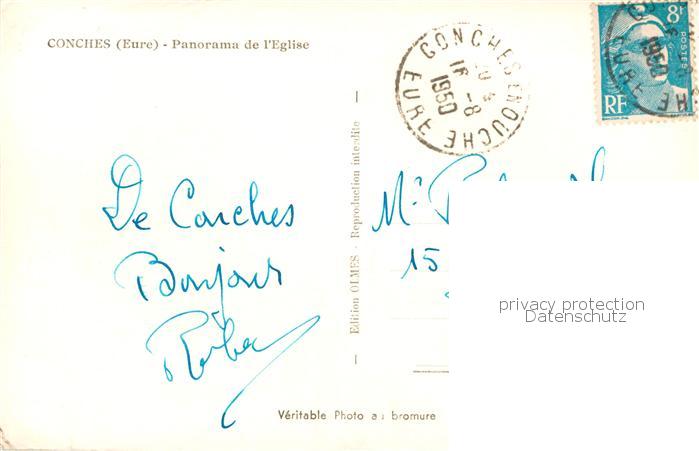 CONCHES (Eure) - Panorama de l'Eglise
CONCHES EN OUCHE
16 -8
1950
EURE
8F
POSTES
RF
1950
EURE
De Conches
Bonjour
Edition OLMES - Reproduction interdite
15
privacy protection
Datenschutz
Véritable Photo au bromure